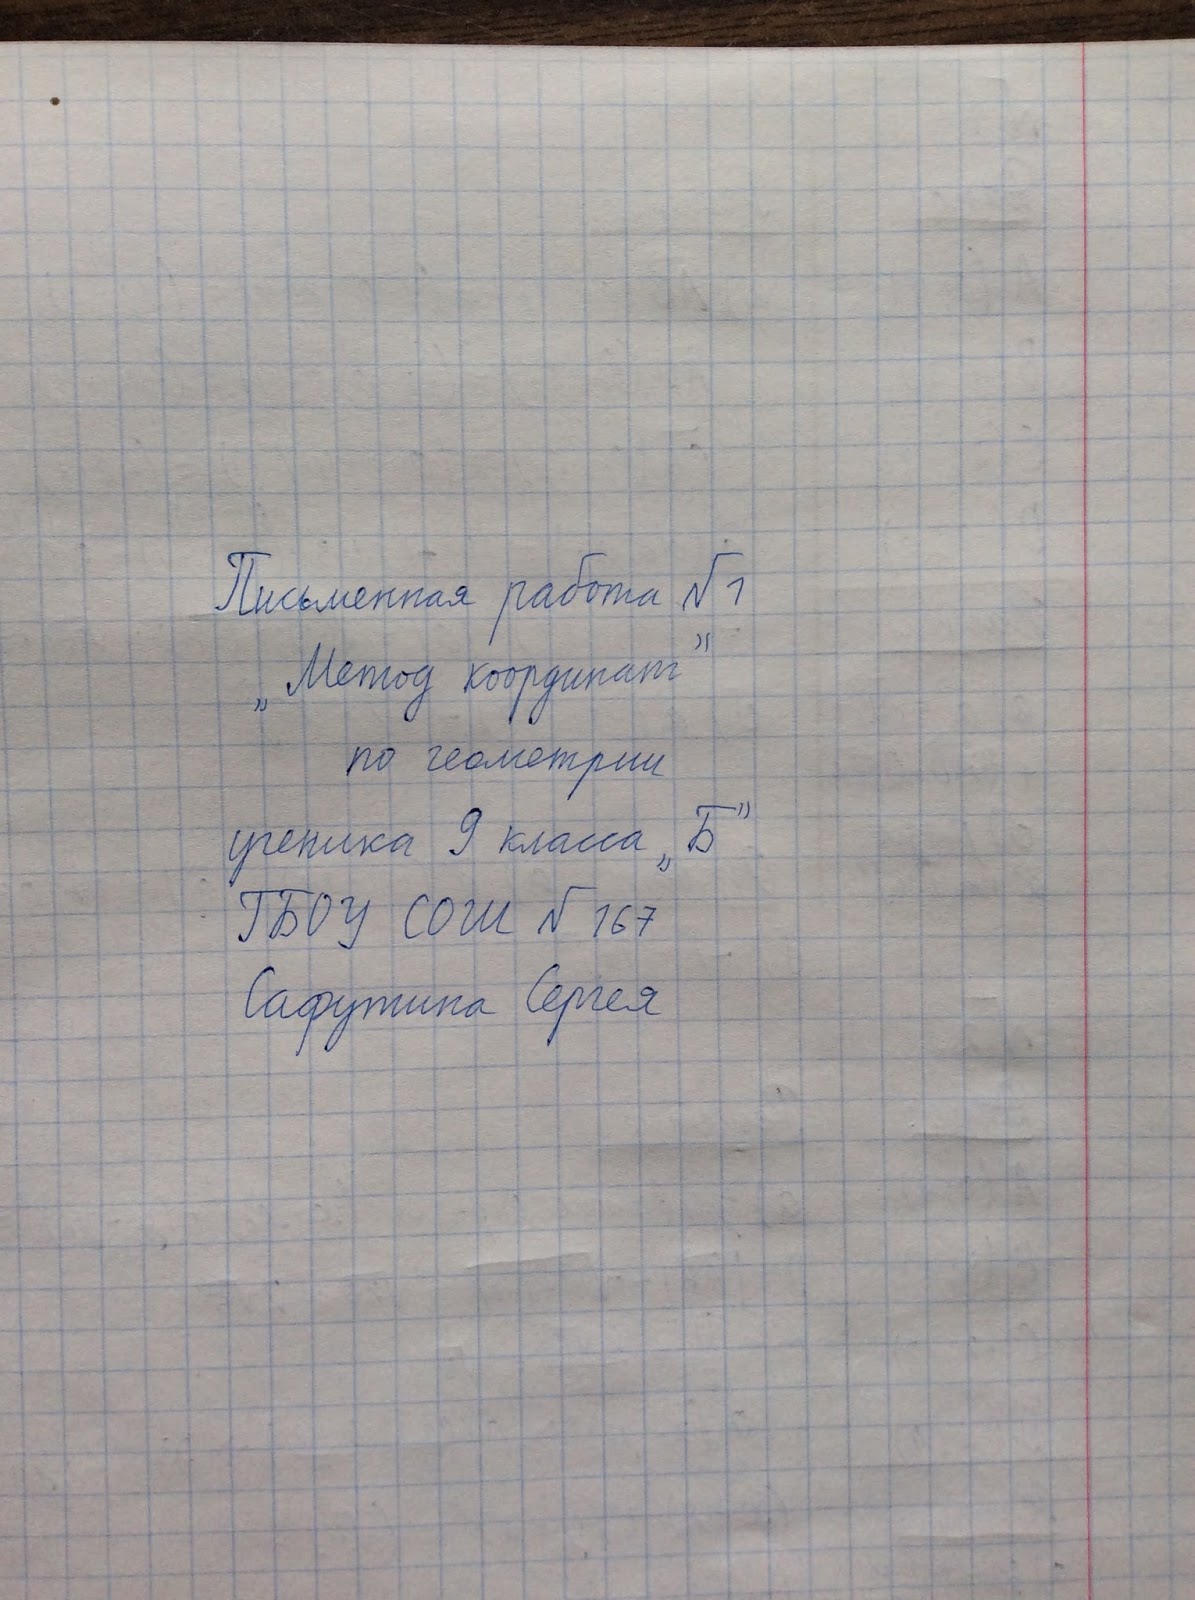 Письменная работа №1
„Метод координат”
по геометрии
ученика 9 класса „Б”
ГБОУ СОШ № 167
Сафутина Сергея